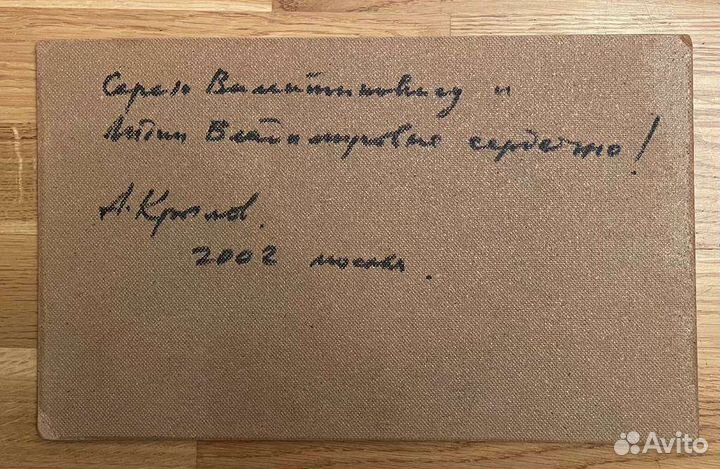 Сергею Валентиновичу и
Владимировне сердечно!
А. Крылов.
2002 москва.
Avito